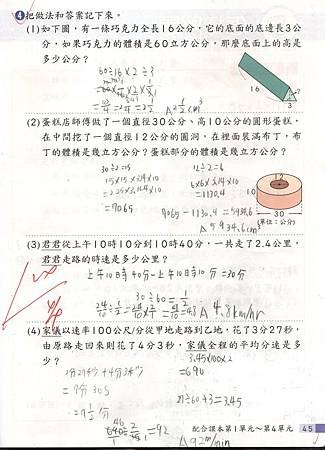 4 把做法和答案記下來。
(1)如下圖，有一條巧克力全長16公分，它的底面的底邊長3公
分，如果巧克力的體積是60立方公分，那麼底面上的高是
多少公分？
60÷16×2÷3
16
3
(2)蛋糕店師傅做了一個直徑30公分、高10公分的圓形蛋糕，
在中間挖了一個直徑12公分的圓洞，在裡面裝滿布丁，布
丁的體積是幾立方公分？蛋糕部分的體積是幾立方公分？
30÷2=15
12÷2=6
15×15×3.14×10
6×6×3.14×10
=1130.4
=7065
7065-1130.4=5934.6
A 5934.6cm³
12
10
30
(單位：公分)
(3)君君從上午10時10分到10時40分，一共走了2.4公里，
君君走路的時速是多少公里？
上午10時40分-上午10時10分=30分
30÷60=1/2
A 4.8km/hr
(4)家儀以速率100公尺/分從甲地走路到乙地，花了3分27秒，
由原路走回來則花了4分3秒，家儀全程的平均分速是多
少？
3.45×100×2
=690
27÷60+3=3.45
=7分30秒
=7½分
=92
A 92m/min
配合課本第1單元～第4單元
45